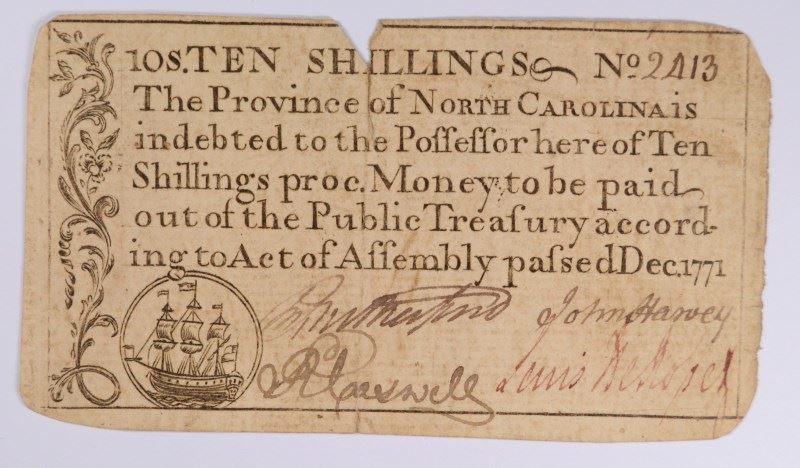 10S. TEN SHILLINGS No 2413
The Province of NORTH CAROLINA is
indebted to the Poſſeſſor here of Ten
Shillings proc. Money to be paid
out of the Public Treaſury accord-
ing to Act of Aſſembly paſsed Dec. 1771
Rutherfurd John Harvey
R Caswell Lewis De Rosset